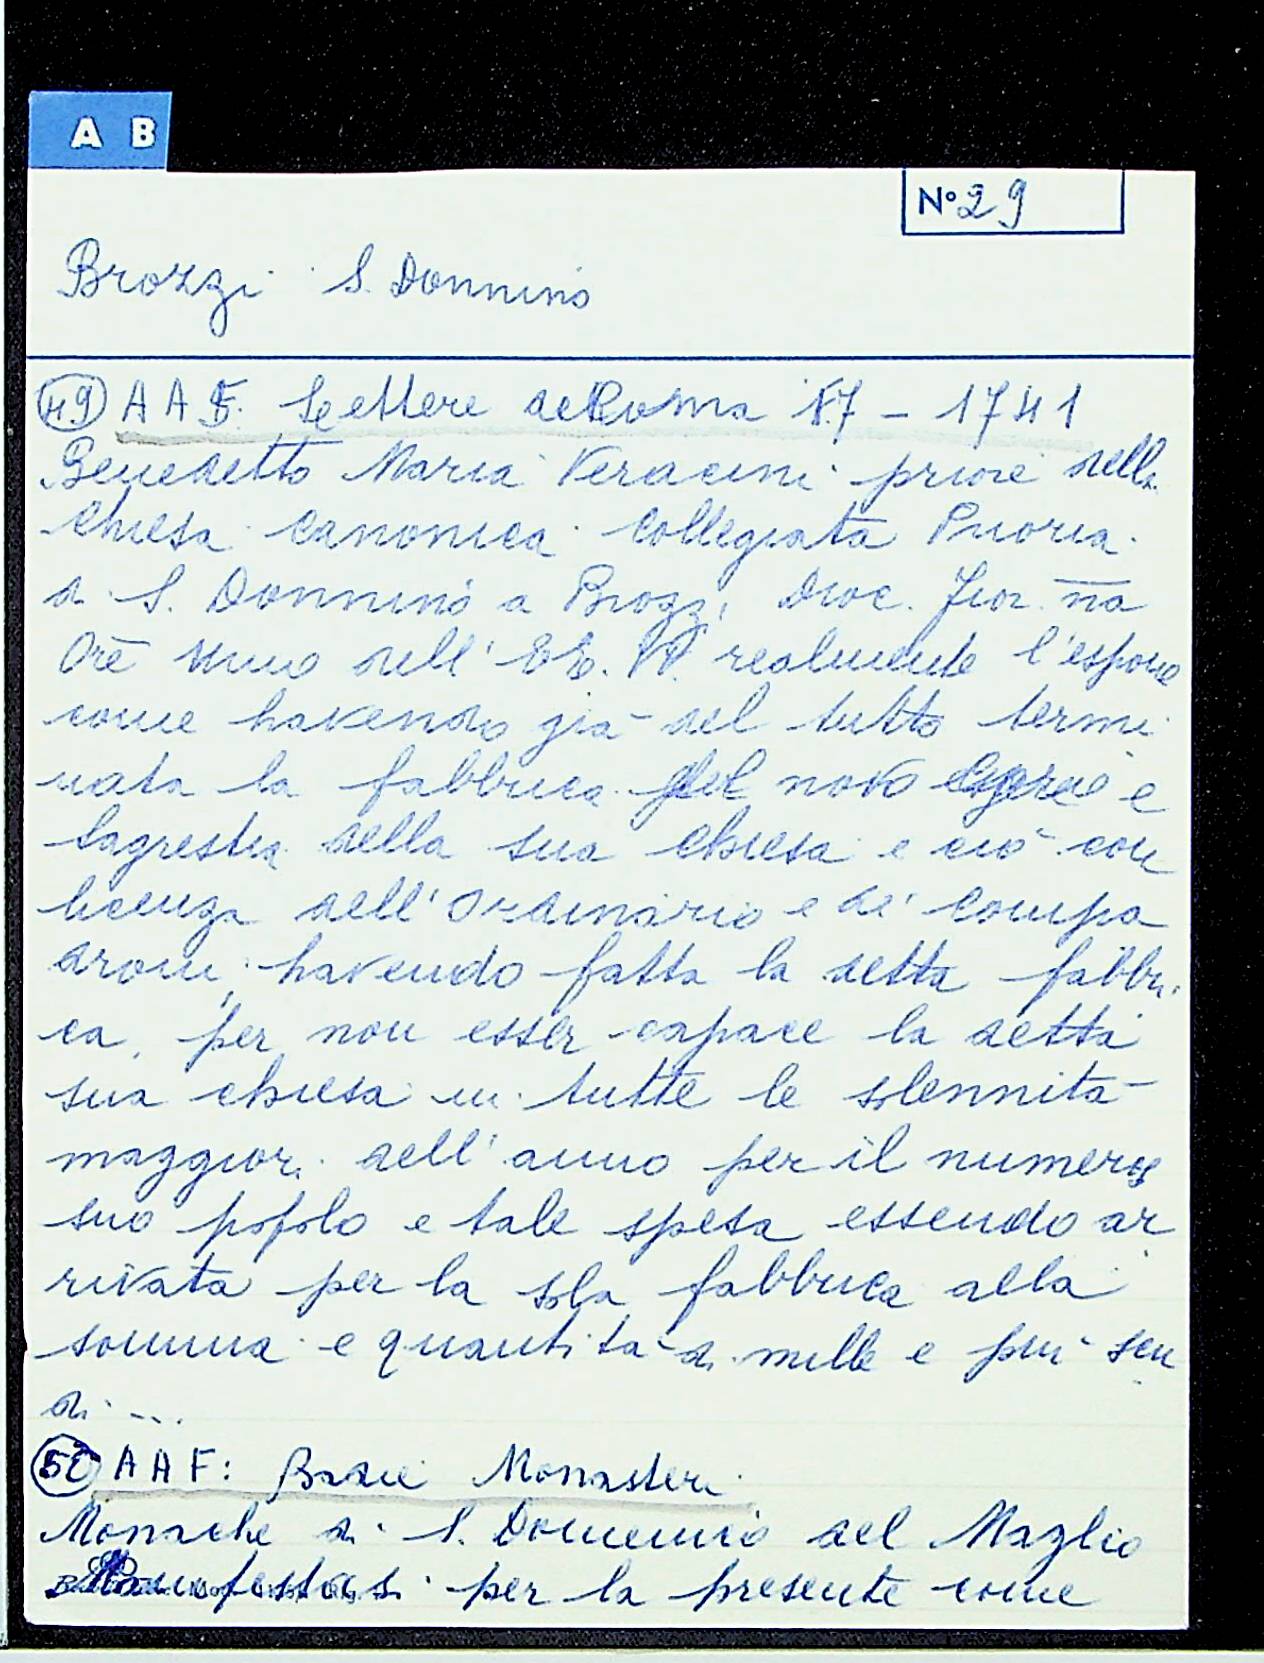 A B
N° 29
Brozzi S. Donnino
49 AAF. Lettere de Roma 17 - 1741
Benedetto Maria Veracini priore della
chiesa canonica collegiata Prioria
di S. Donnino a Brozzi Dioc. Fior.na
Ore Umo dell' EE. VV. realmente l'espone
come havendo già del tutto termi
nata la fabbrica del novo e
Sagrestia della sua chiesa e ciò con
licenza dell'Ordinario e de' compa
droni, havendo fatta la detta fabbri
ca, per non esser capace la detta
sua chiesa in tutte le solennità
maggiori dell'anno per il numeros
suo popolo e tale spesa essendo ar
rivata per la sola fabbrica alla
somma e quantità di mille e più scu
di ...
50 AAF: Badie Monasteri
Monache di S. Domenico del Maglio
per la presente come